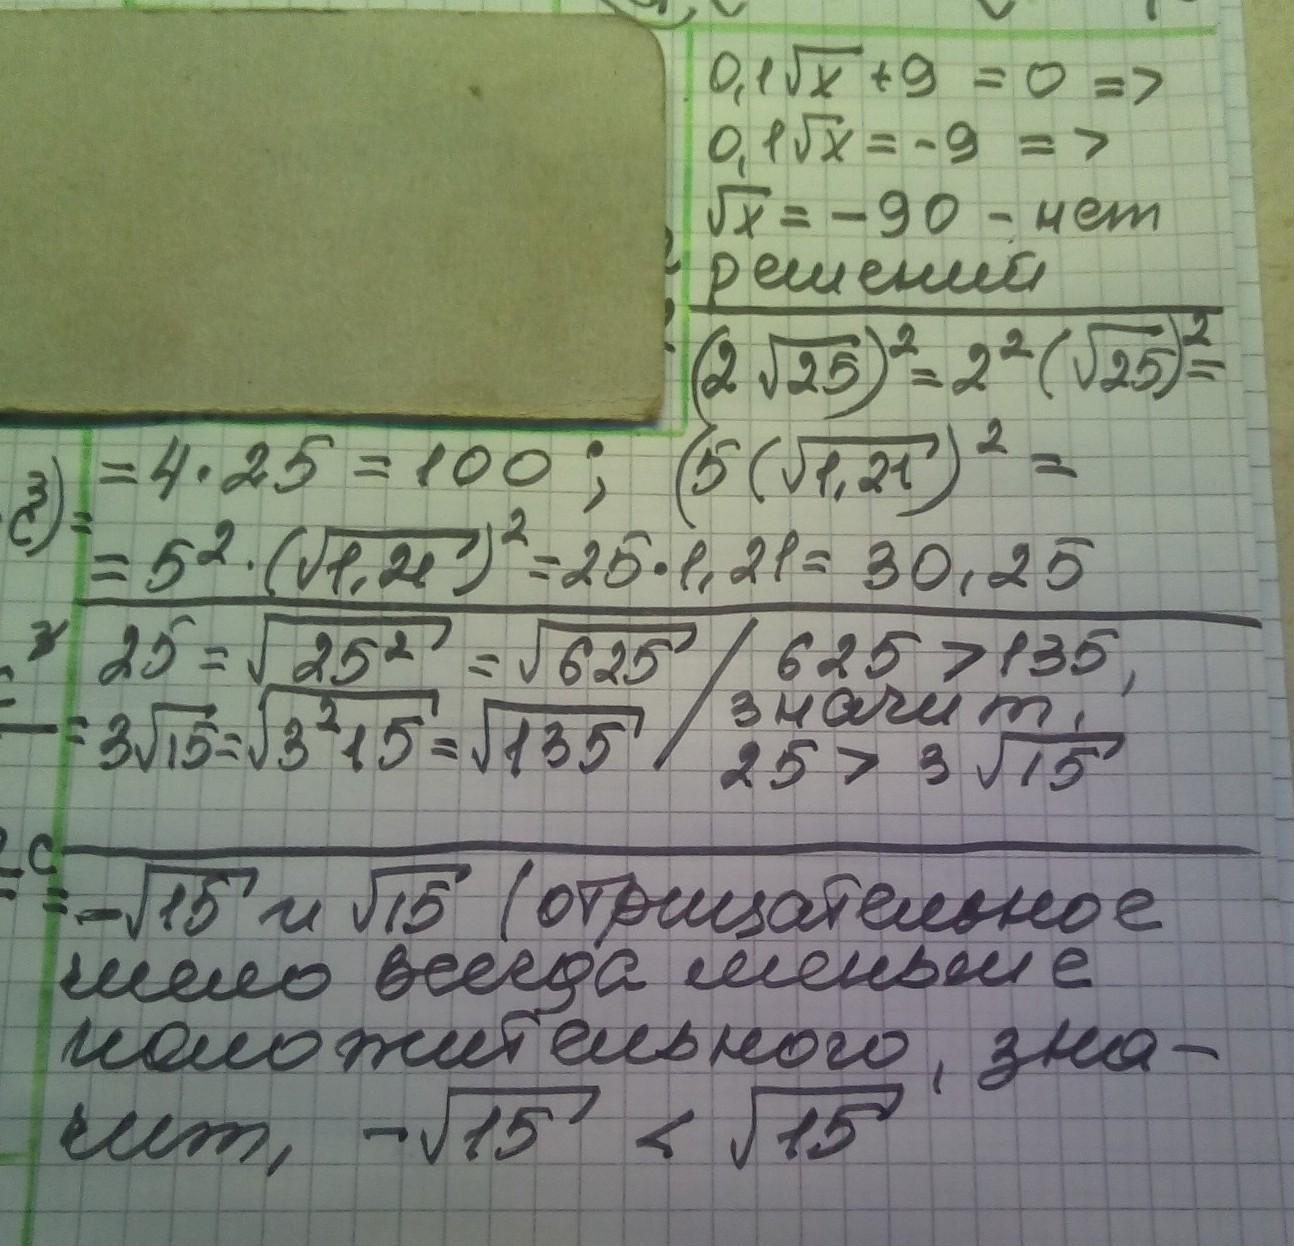 0,1√x + 9 = 0 =>
0,1√x = -9 =>
√x = -90 - нет
решений
(2√25)² = 2²(√25)² =
= 4·25 = 100; (5(√1,21)² =
= 5²·(√1,21)² = 25·1,21 = 30,25
25 = √25² = √625 / 625 > 135,
3√15 = √3²15 = √135 / значит,
25 > 3√15
-√15 и √15 (отрицательное
число всегда меньше
положительного, зна-
чит, -√15 < √15